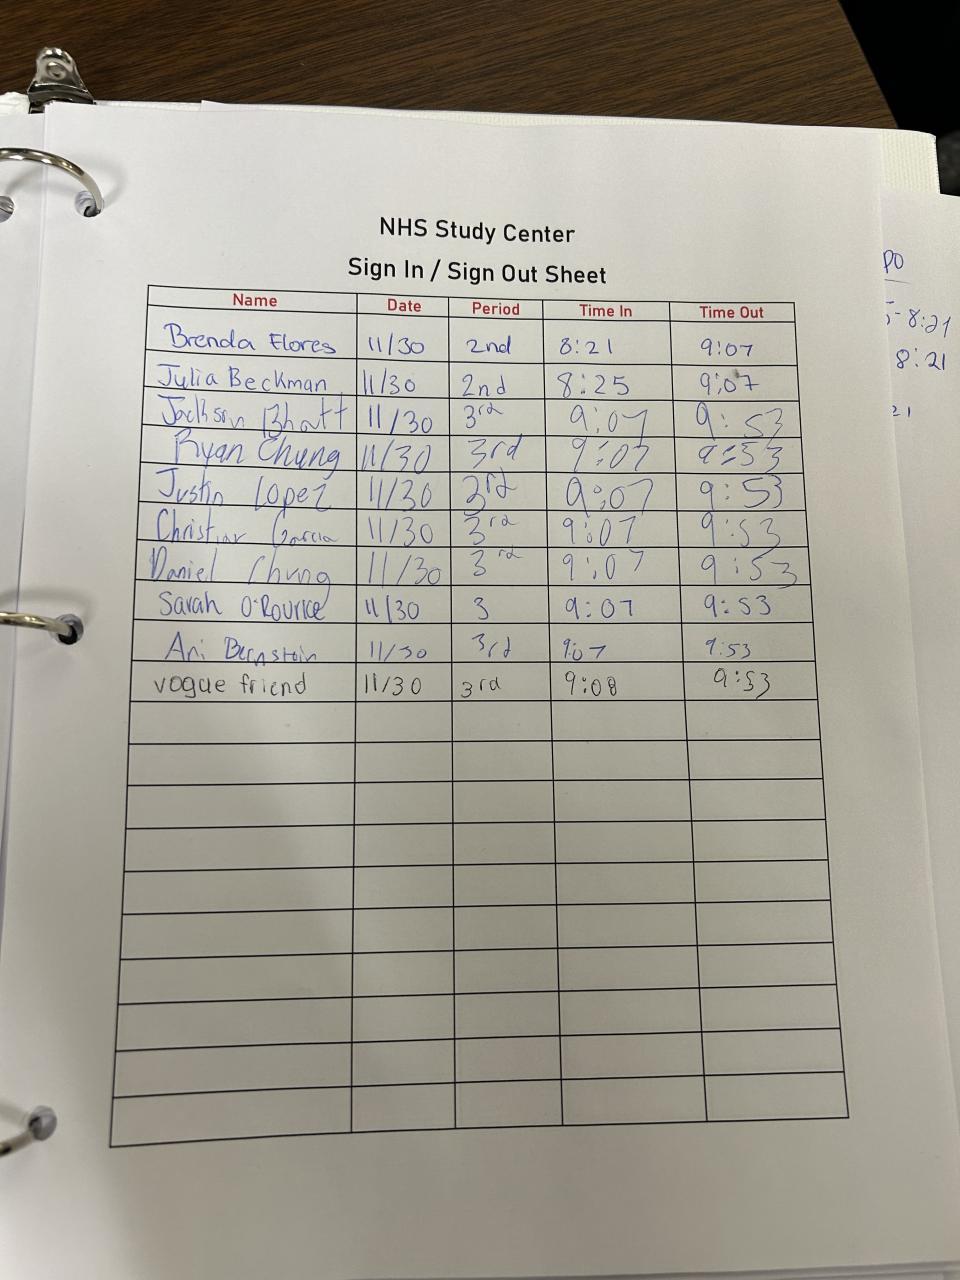 NHS Study Center
Sign In / Sign Out Sheet
Name Date Period Time In Time Out
Brenda Flores 11/30 2nd 8:21 9:07
Julia Beckman 11/30 2nd 8:25 9:07
Jackson Bhatt 11/30 3rd 9:07 9:53
Ryan Chung 11/30 3rd 9:07 9:53
Justin Lopez 11/30 3rd 9:07 9:53
Christian Garcia 11/30 3rd 9:07 9:53
Daniel Chung 11/30 3rd 9:07 9:53
Sarah O'Rourke 11/30 3 9:07 9:53
Ari Bernstein 11/30 3rd 9:07 9:53
vogue friend 11/30 3rd 9:08 9:53
PO
-8:21
8:21
21